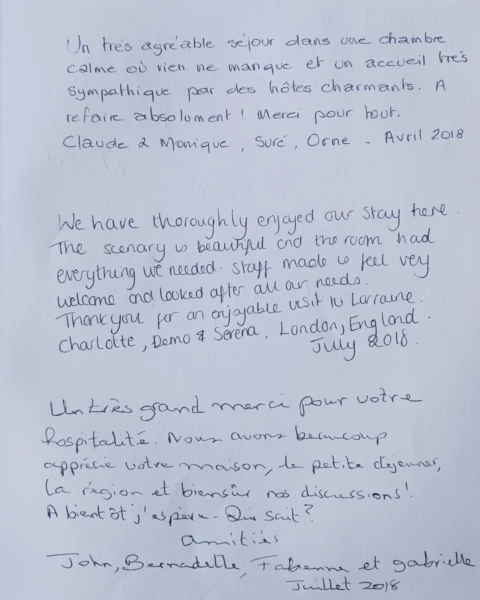 Un très agréable séjour dans une chambre
calme où rien ne manque et un accueil très
sympathique par des hôtes charmants. A
refaire absolument ! Merci pour tout.
Claude & Monique, Suré, Orne - Avril 2018
We have thoroughly enjoyed our stay here.
The scenary is beautiful and the room had
everything we needed. Staff made us feel very
welcome and looked after all our needs.
Thankyou for an enjoyable visit to Lorraine.
Charlotte, Demo & Serena, London, England.
July 2018.
Un très grand merci pour votre
hospitalité. Nous avons beaucoup
apprécié votre maison, le petite déjeuner,
la région et biensûr nos discussions!
A bientôt j'espère - Qui sait?
amitiés
John, Bernadette, Fabienne et gabrielle
Juillet 2018